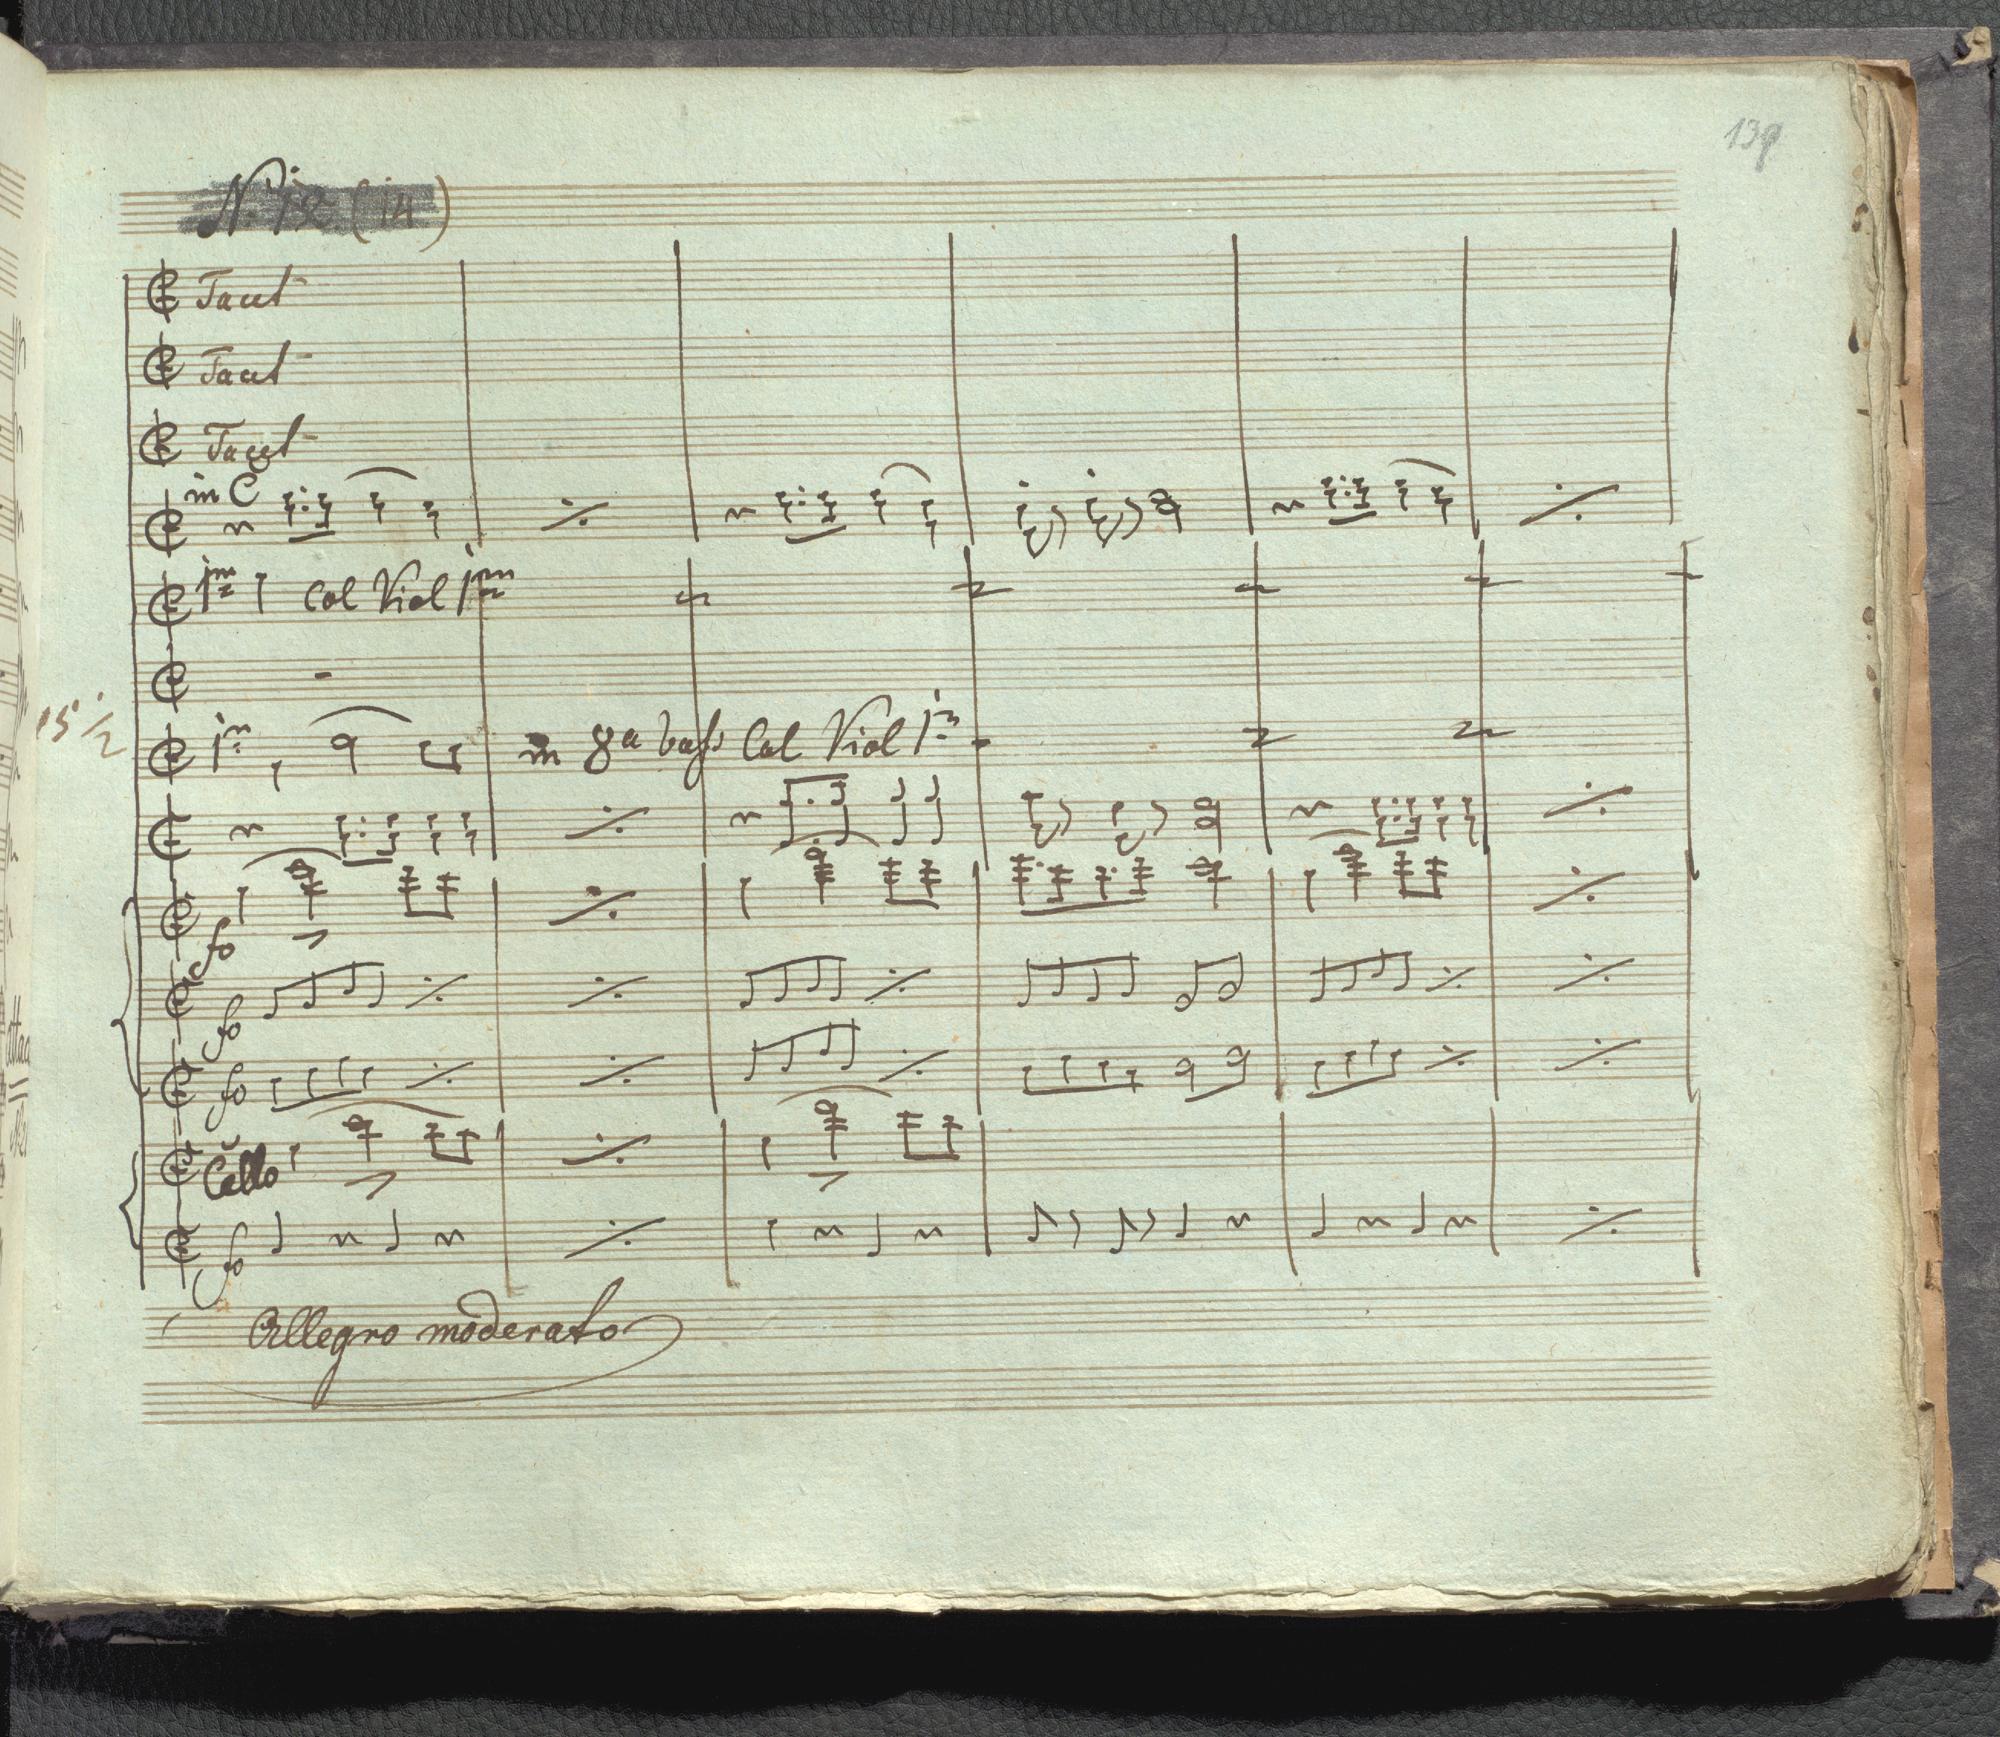 139
N. 12 (14)
Tacet
Tacet
Tacet
in C
1m Col Viol 1m
15 1/2
1m in 8a basso Col Viol 1m
fo
fo
fo
Cello
fo
Allegro moderato